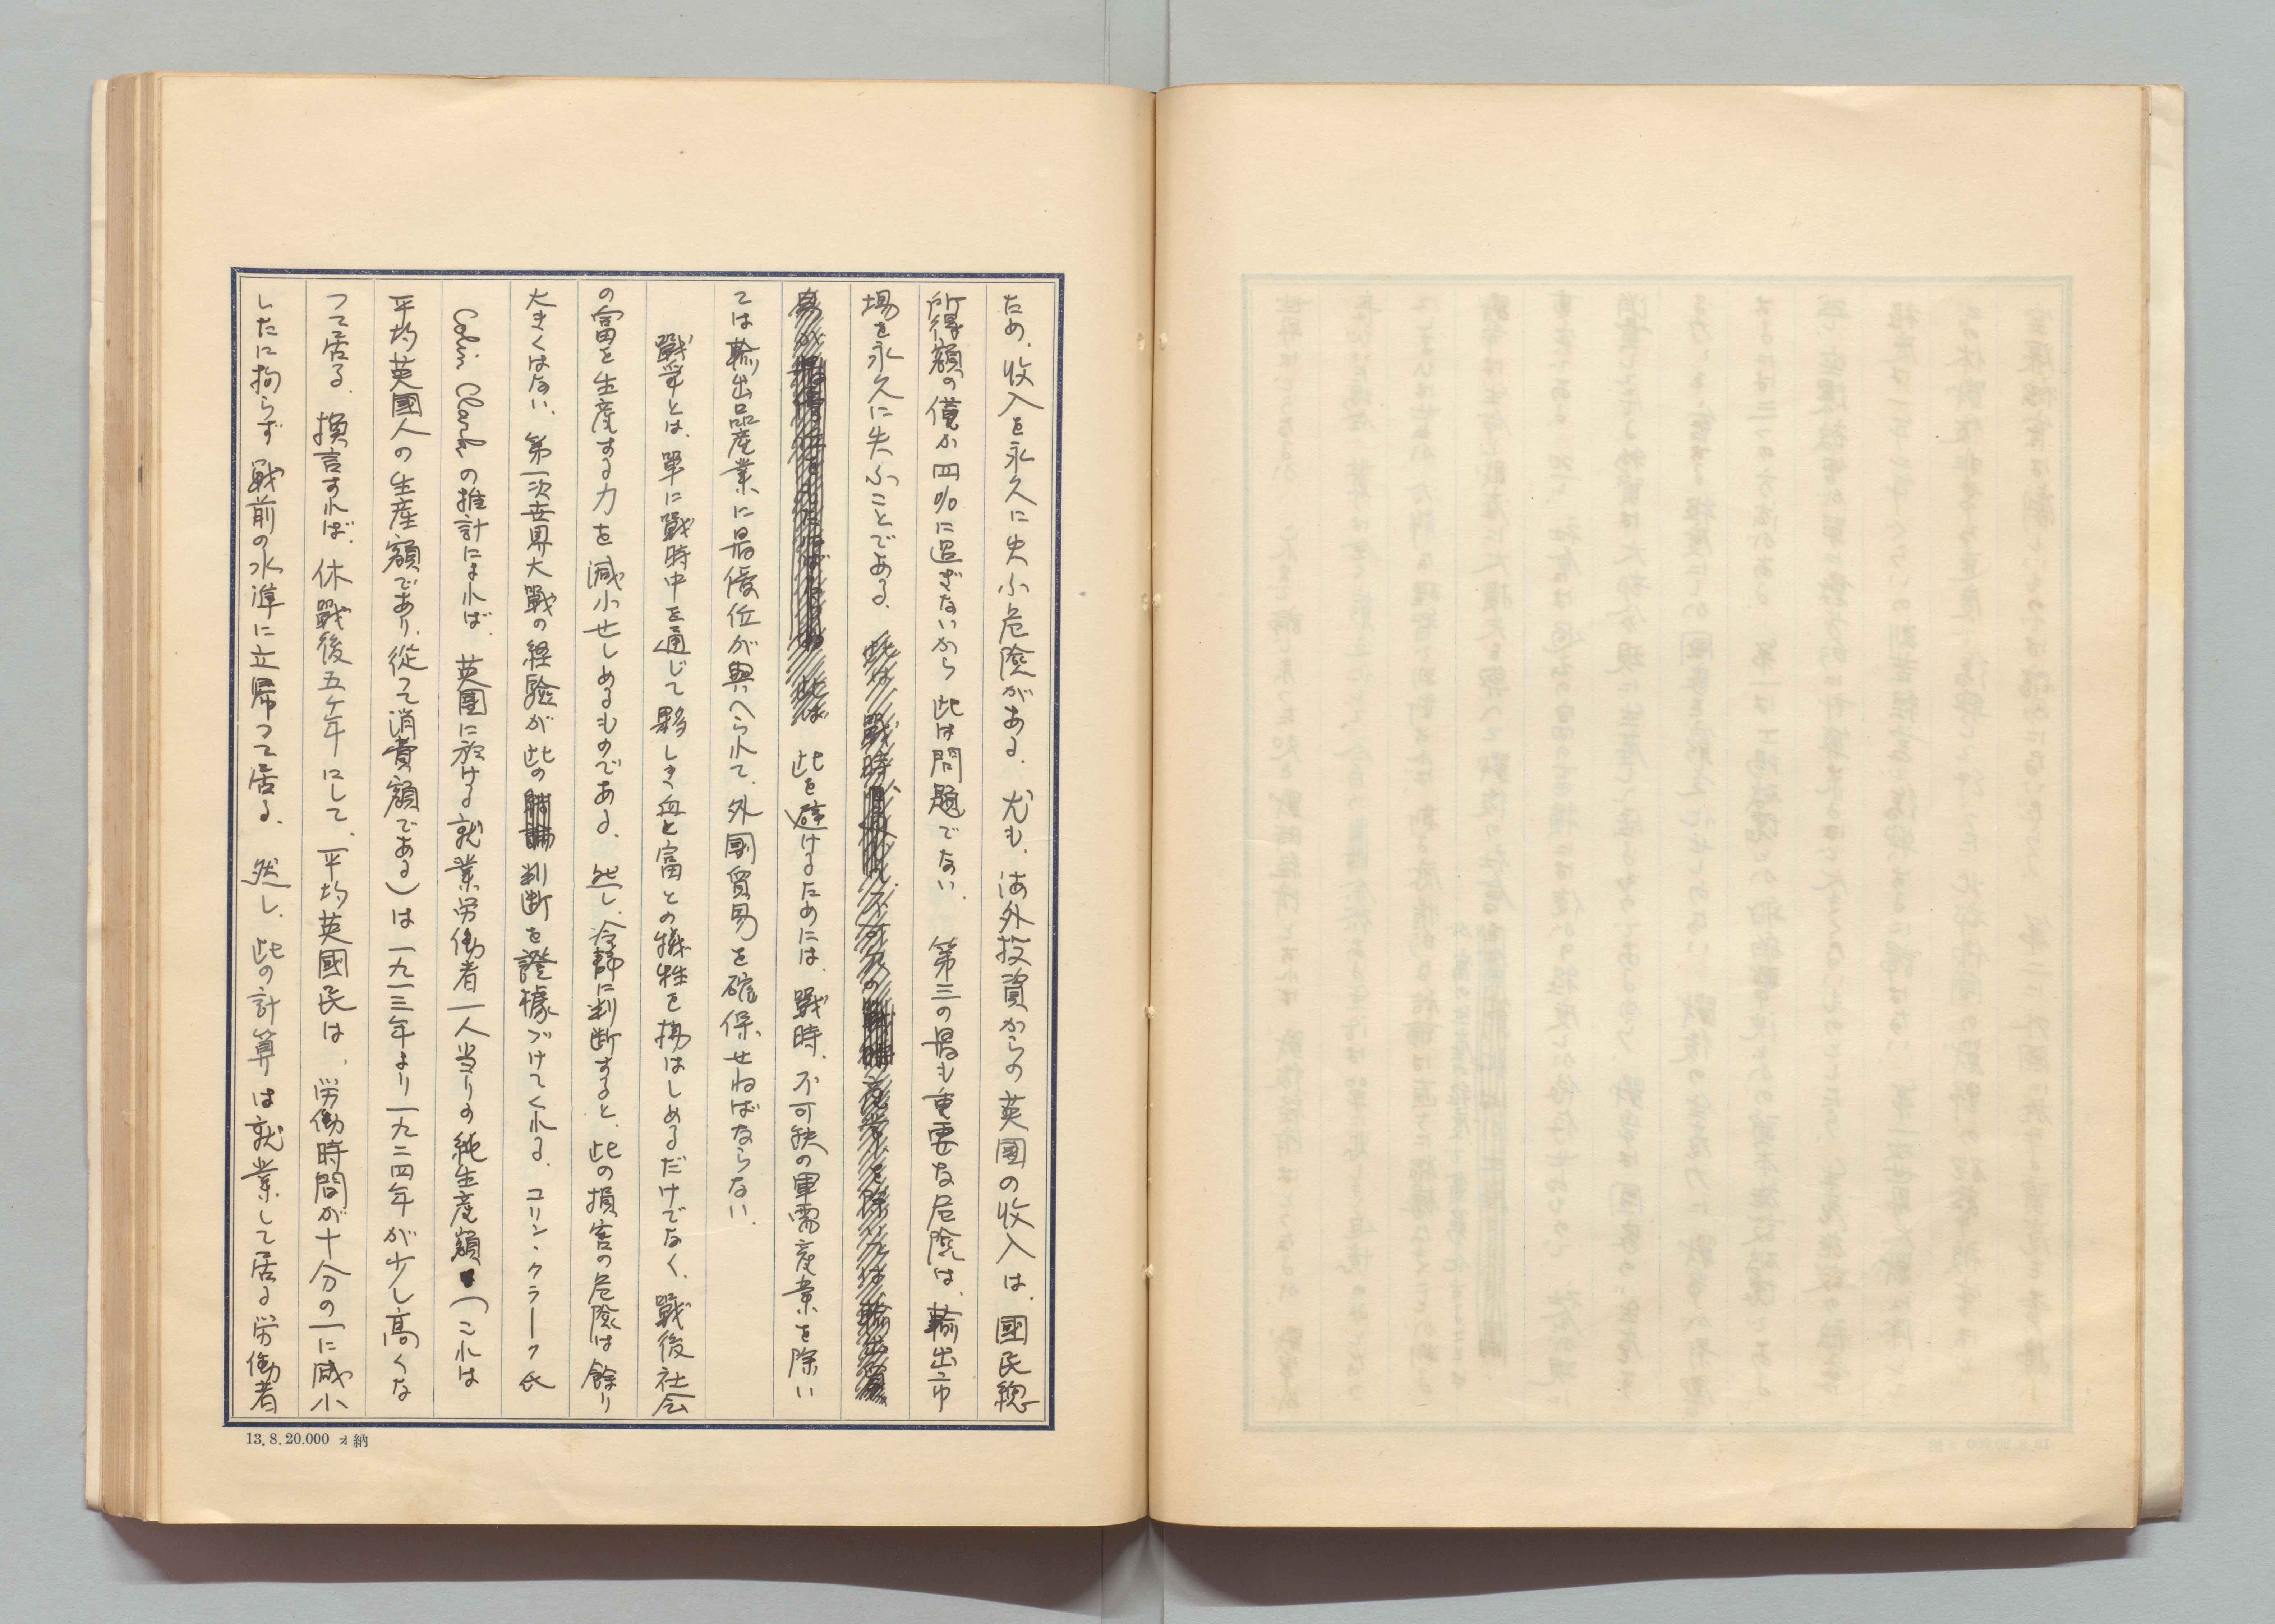 ため、収入を永久に失ふ危險がある。尤も、海外投資からの英國の收入は、國民總
所得額の僅か四%に過ぎないから此は問題でない。第三の最も重要な危險は、輸出市
場を永久に失ふことである。
此を避けるためには、戰時、不可缺の軍需産業を除い
ては輸出品産業に最優位が與へられて、外國貿易を確保せねばならない。
戰爭とは、單に戰時中を通じて夥しき血と富との犠牲を拂はしめるだけでなく、戰後社会
の富を生産する力を減小せしめるものである。然し、冷靜に判断すると、此の損害の危險は餘り
大きくはない。第一次世界大戰の経驗が此の判断を證據づけてくれる。コリン・クラーク氏
Colin Clarkの推計によれば、英國に於ける就業労働者一人当りの純生産額(これは
平均英國人の生産額であり、從つて消費額である)は一九一三年より一九二四年が少し高くな
つて居る。換言すれば、休戰後五ヶ年にして、平均英國民は、労働時間が十分の一に減小
したに拘らず戦前の水準に立帰つて居る。然し、此の計算は就業して居る労働者
13.8.20.000 オ納